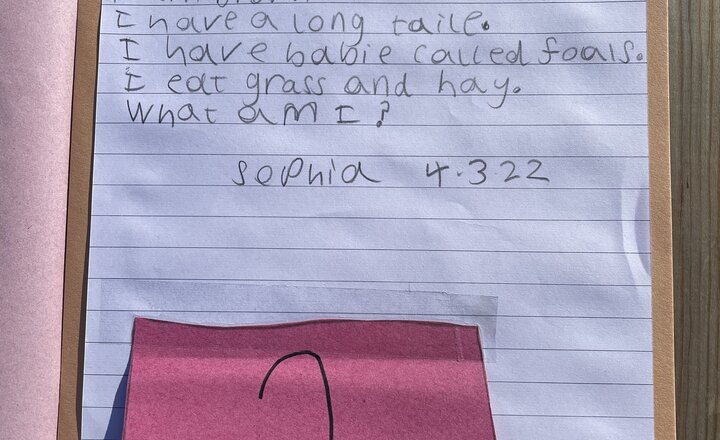 I have a long taile.
I have babie called foals.
I eat grass and hay.
What aM I?
Sophia 4.3.22
?